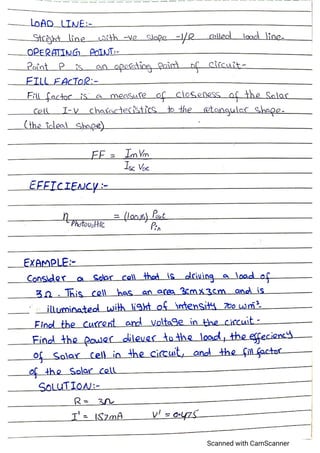 LOAD LINE:-
Straight line with -ve slope -1/R called load line.
OPERATING POINT:-
Point P is an operating point of circuit-
FILL FACTOR:-
Fill factor is a measure of closeness of the Solar
cell I-V characteristics to the retangular shape.
(the ideal shape)
FF = ImVm
Isc Voc
EFFICIENCY:-
η Photovoltic = (100%) Pout
Pin
EXAMPLE:-
Consider a Solar cell that is driving a load of
3Ω. This cell has an area 3cmx3cm and is
illuminated with light of intensity 700 wm².
Find the current and voltage in the circuit-
Find the power dilever to the load, the effeciency
of Solar cell in the circuit, and the fill factor
of the Solar cell
SOLUTION:-
R= 3Ω
I' = 157mA V' = 0.475
Scanned with CamScanner